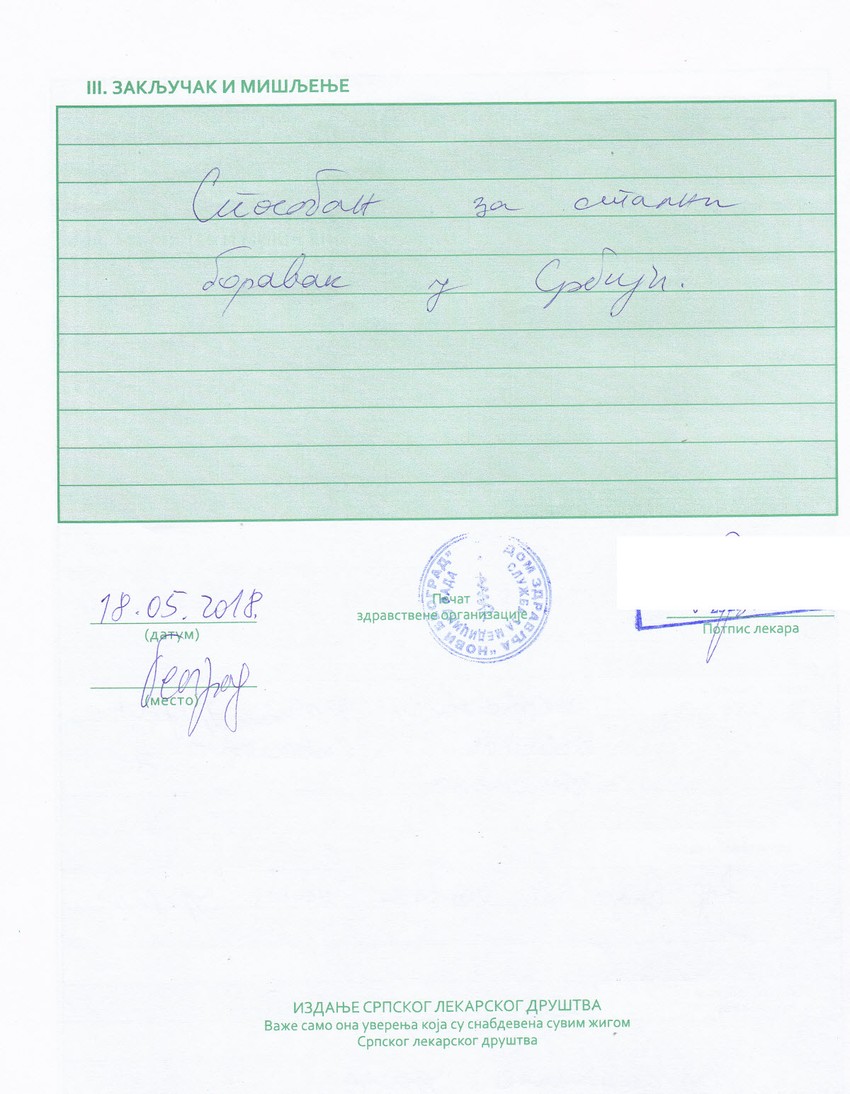 III. ЗАКЉУЧАК И МИШЉЕЊЕ
Способан за стални
боравак у Србији.
18.05.2018.
(датум)
Београд
(место)
Печат
здравствене организације
ДОМ ЗДРАВЉА "НОВИ БЕОГРАД"
СЛУЖБА ЗА МЕДИЦИНУ РАДА
Потпис лекара
ИЗДАЊЕ СРПСКОГ ЛЕКАРСКОГ ДРУШТВА
Важе само она уверења која су снабдевена сувим жигом
Српског лекарског друштва